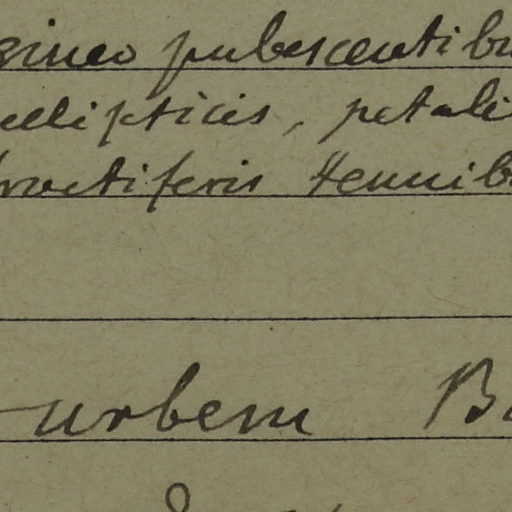 gineo pubescentibu
ellipticis, petali
fructiferis tenuib
urbem B